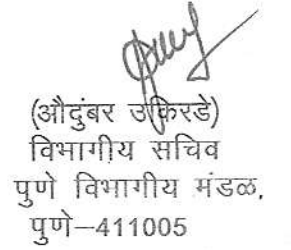 (औदुंबर उकिरडे)
विभागीय सचिव
पुणे विभागीय मंडळ,
पुणे–411005